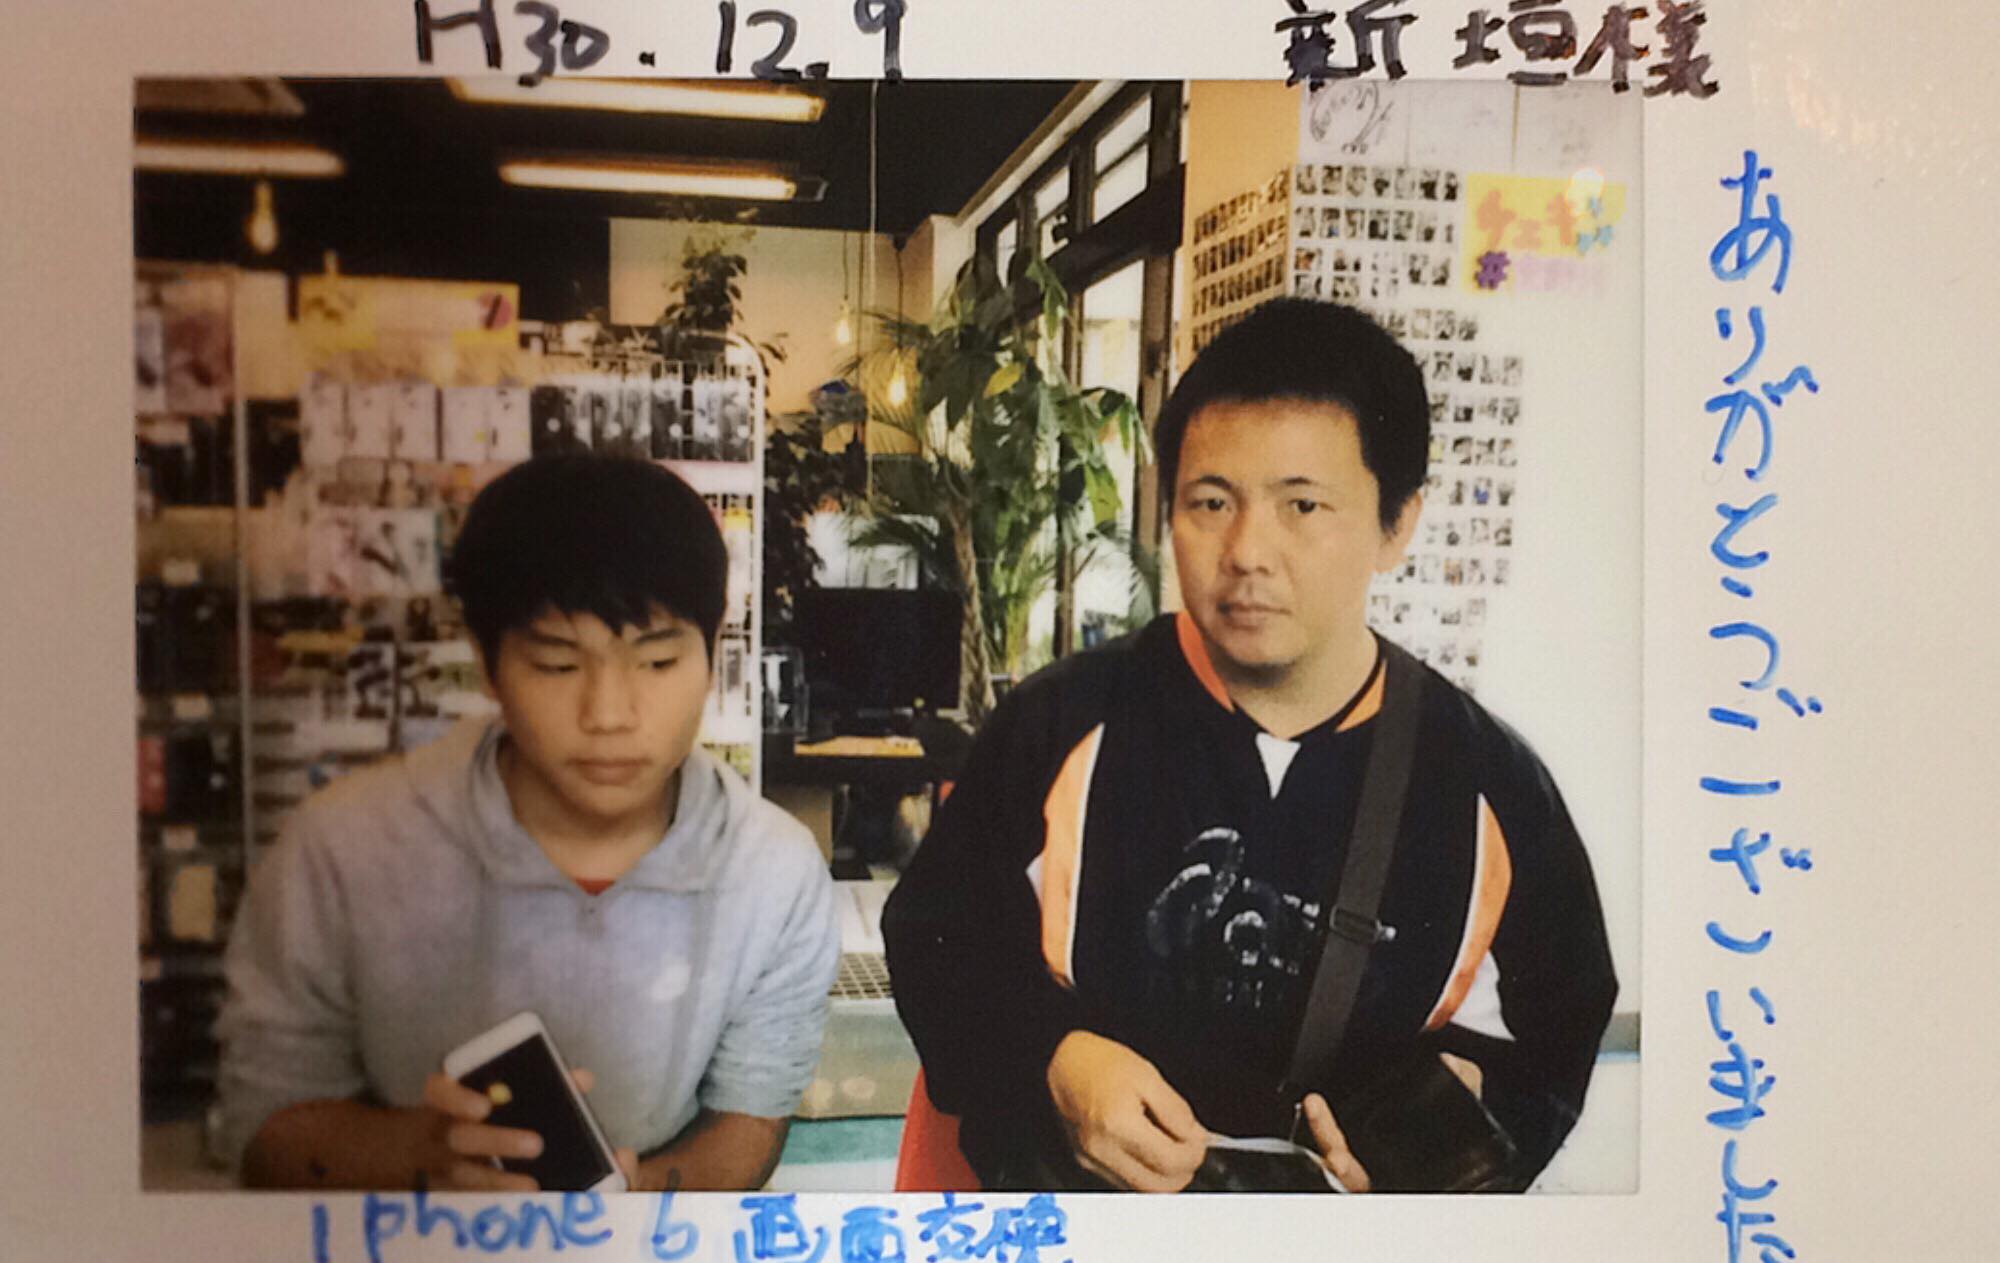 H30.12.9
新垣様
ありがとうございました
チェキ
#
iphone 6 画面交換